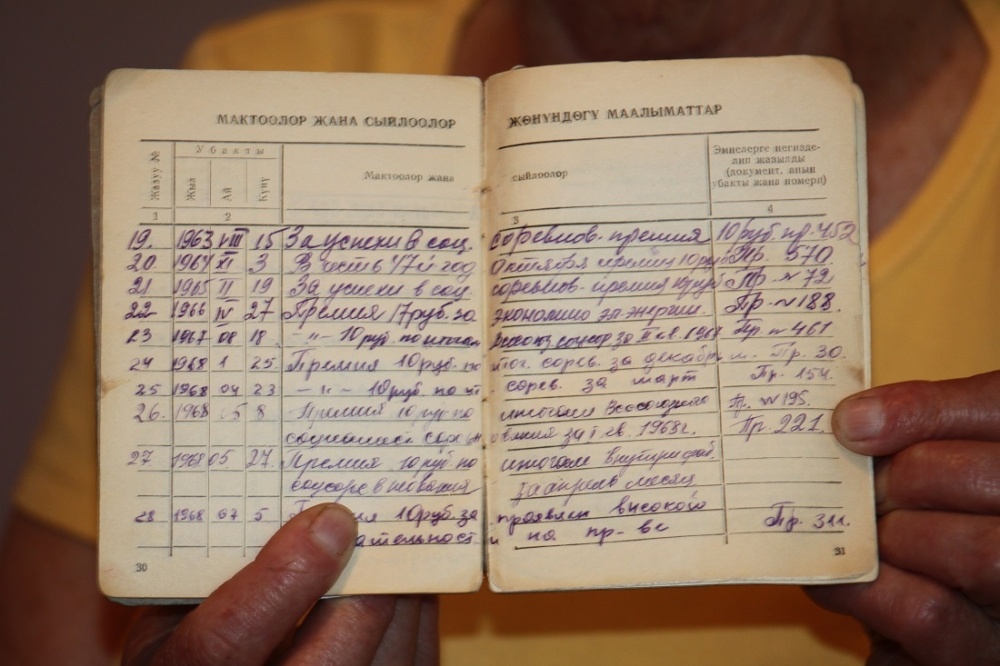 МАКТООЛОР ЖАНА СЫЙЛООЛОР ЖӨНҮНДӨГҮ МААЛЫМАТТАР
Жазуу №
Убакты
Жыл
Ай
Күнү
Мактоолор жана сыйлоолор
Эмнелерге негизде-
лип жазылды
(документ, анын
убакты жана номери)
1 2 3 4
19. 1963 VIII 15 За успехи в соц. соревнов. премия 10 руб. пр. 452
20. 1964 XI 3 В честь 47й год. Октября премия 10 руб Пр. 570
21 1965 II 19 За успехи в соц. соревнов. премия Пр. № 72
22 1966 IV 27 Премия 17 руб. за экономию эл-энергии. Пр. № 188.
23 1967 08 18. –"– 10 руб. по итогам за II кв. 1967 Пр № 461
24 1968 1 25. Премия 10 руб. по итог. сорев. за декабрь м. Пр. 30.
25 1968 04 23 –"– 10 руб. по ит сорев. за март Пр. 154.
26. 1968 05 8 Премия 10 руб по итогам Всесоюзного Пр. № 195.
за I кв. 1968г. Пр. 221.
27 1968 05. 27. Премия 10 руб по итогам
соцсоревнования за апрель месяц
28 1968 07 5 10 руб. за проявлен высокой
ательност и на пр-ве Пр. 311.
30
31